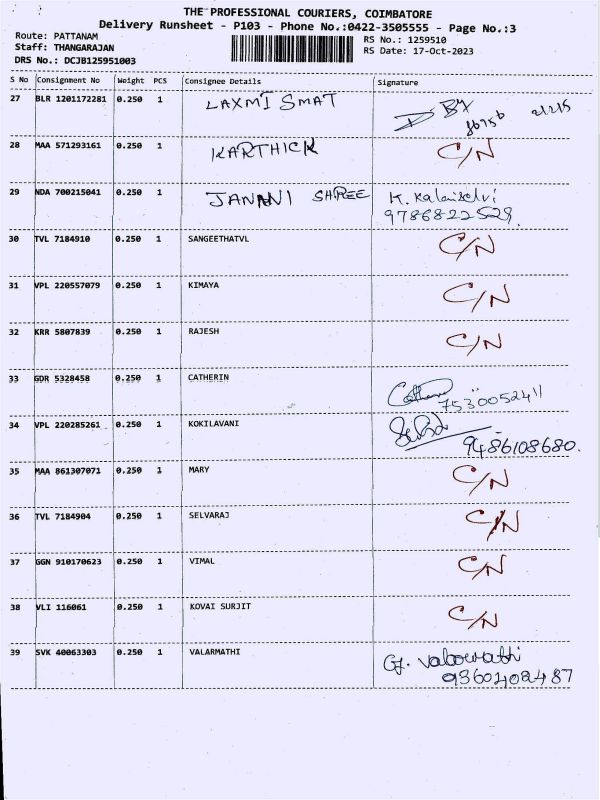 THE PROFESSIONAL COURIERS, COIMBATORE
Delivery Runsheet - P103 - Phone No.:0422-3505555 - Page No.:3
Route: PATTANAM RS No.: 1259510
Staff: THANGARAJAN RS Date: 17-Oct-2023
DRS No.: DCJB125951003
S No Consignment No Weight PCS Consignee Details Signature
27 BLR 1201172281 0.250 1 LAXMI SMAT
28 MAA 571293161 0.250 1 KARTHICK C/N
29 NDA 700215041 0.250 1 JANANI SHREE K. Kalaiselvi
9786822529.
30 TVL 7184910 0.250 1 SANGEETHATVL C/N
31 VPL 220557079 0.250 1 KIMAYA C/N
32 KRR 5807839 0.250 1 RAJESH C/N
33 GDR 5328458 0.250 1 CATHERIN
7530052411
34 VPL 220285261 0.250 1 KOKILAVANI
9486108680.
35 MAA 861307071 0.250 1 MARY C/N
36 TVL 7184904 0.250 1 SELVARAJ C/N
37 GGN 910170623 0.250 1 VIMAL C/N
38 VLI 116061 0.250 1 KOVAI SURJIT C/N
39 SVK 40063303 0.250 1 VALARMATHI
9360408487